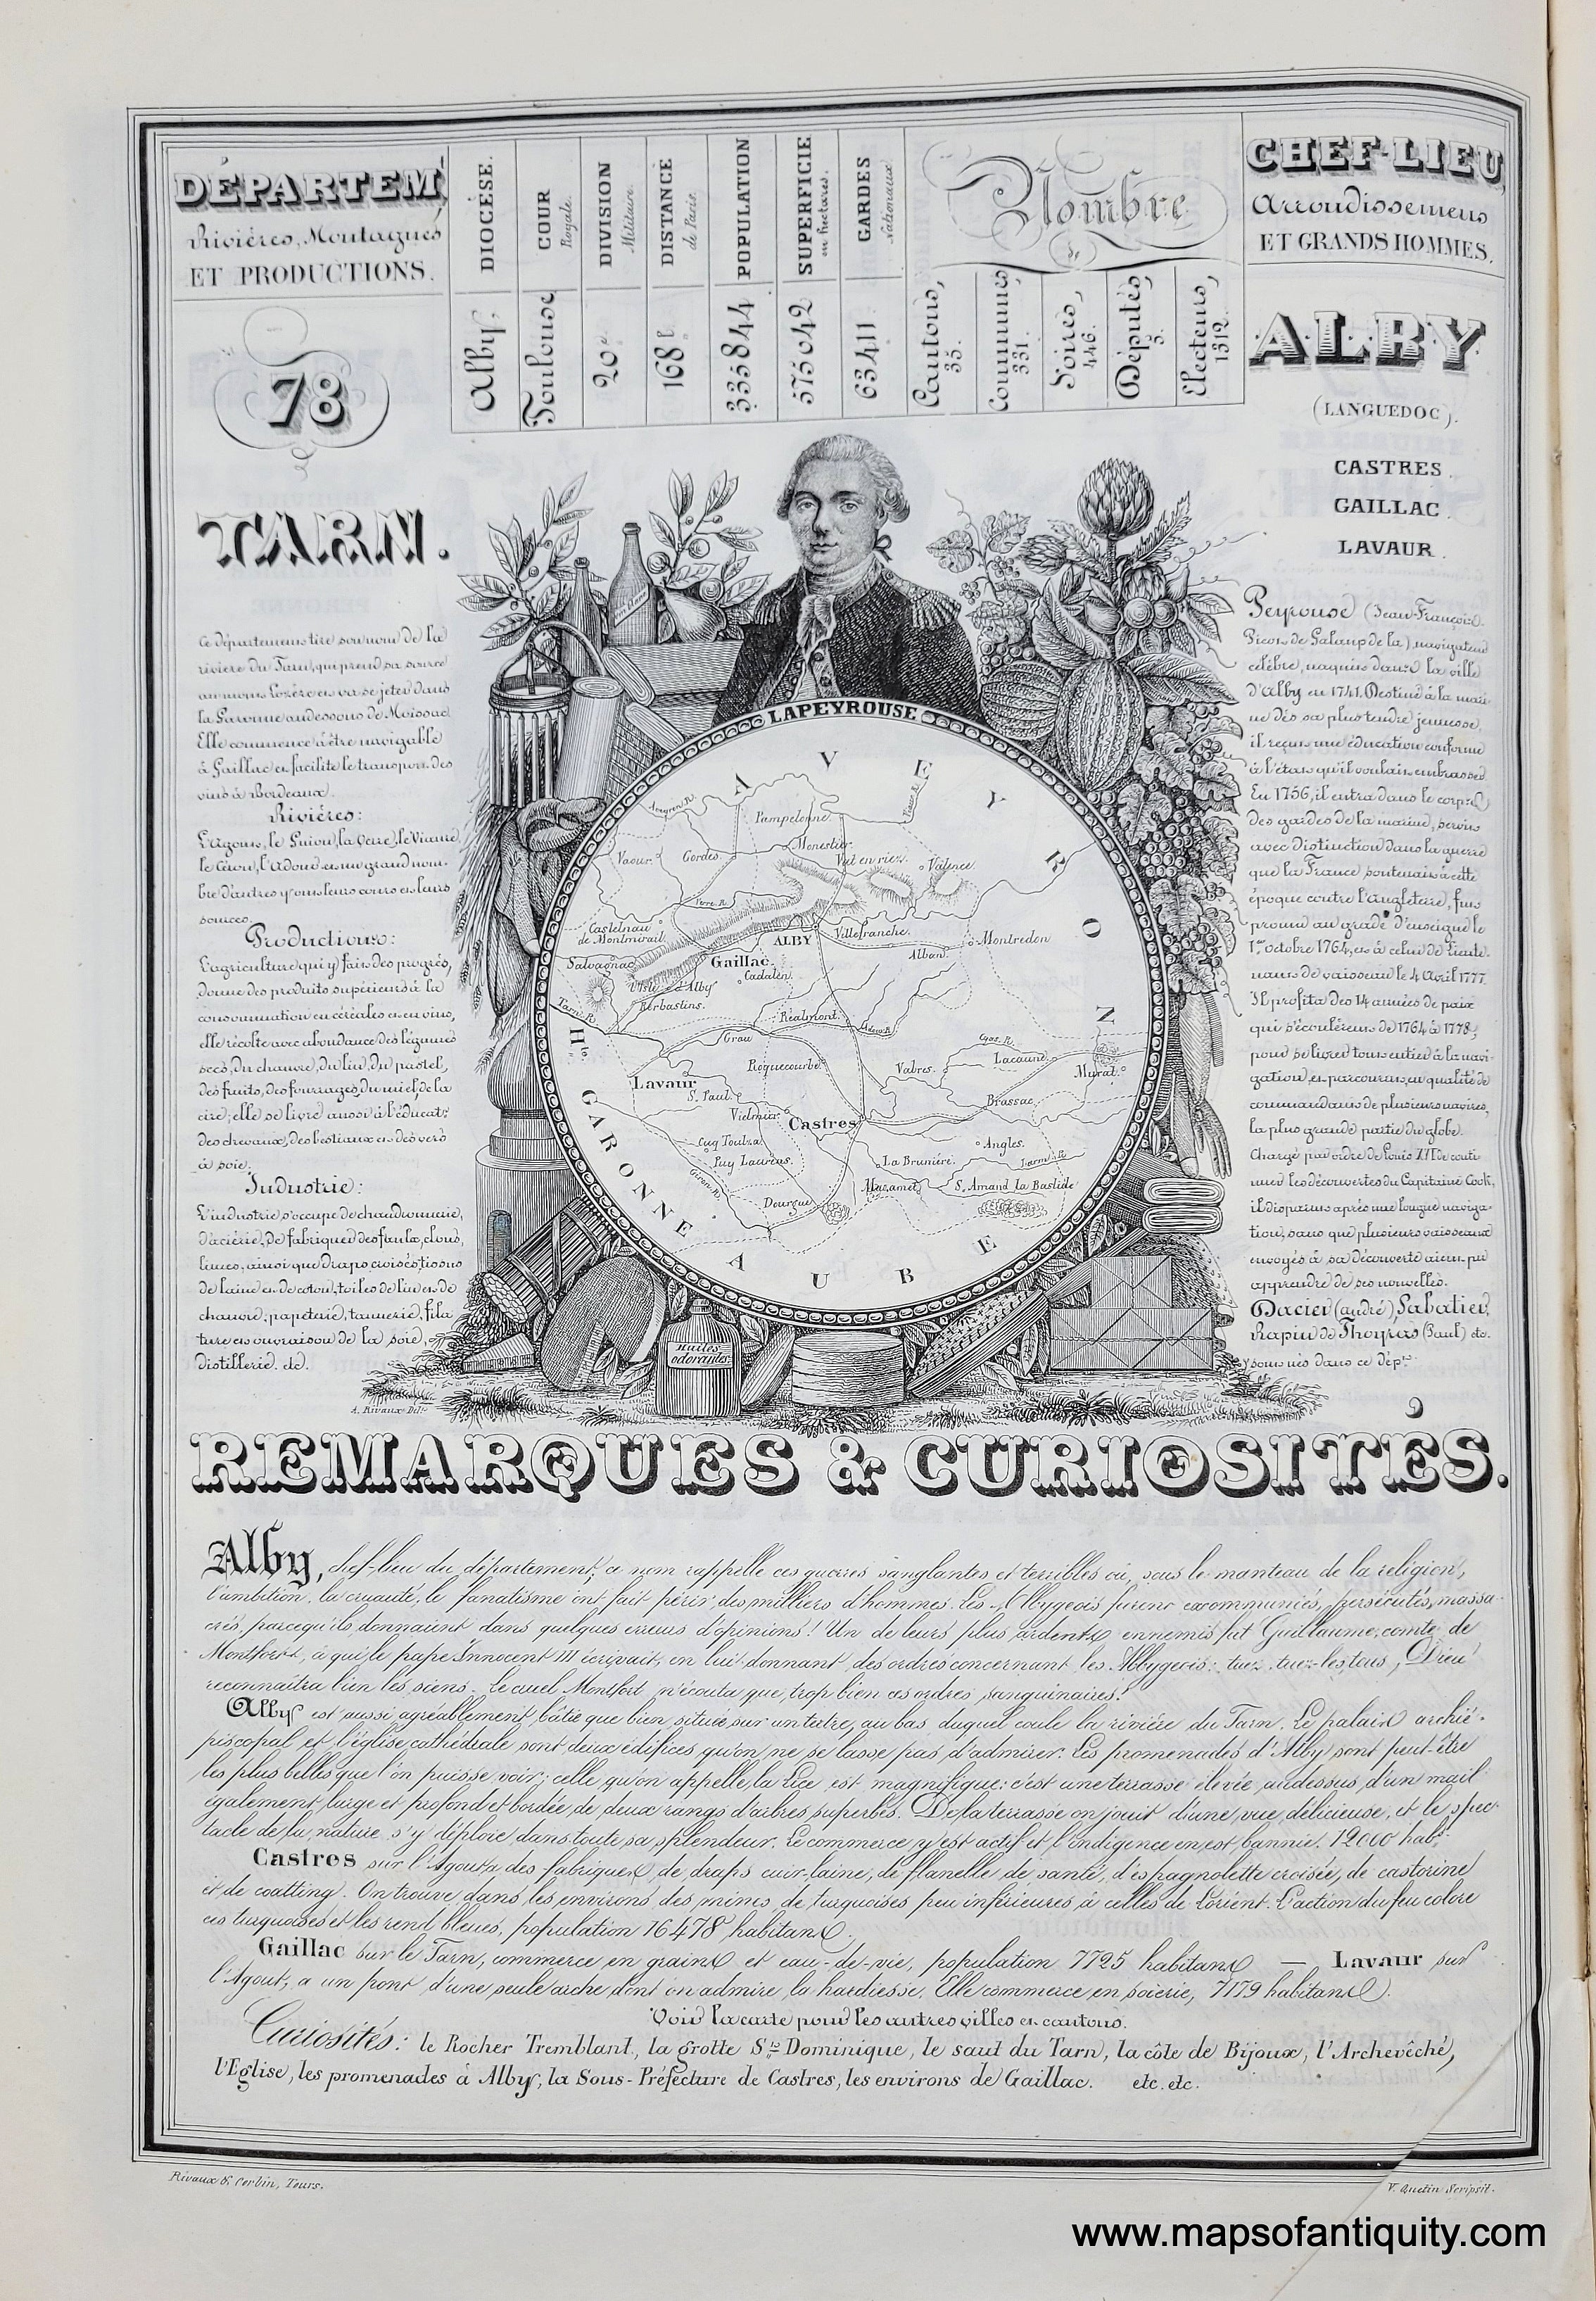 DÉPARTEM.
Rivières, Montagnes
ET PRODUCTIONS.
78
TARN.
DIOCÈSE.
Alby.
COUR
Royale.
Toulouse
DIVISION
Militaire.
20e
DISTANCE
de Paris.
168 l
POPULATION
335844
SUPERFICIE
en hectares.
575042
GARDES
Nationaux
63411
Nombre
de
Cantons,
35.
Communes
331.
Foires,
446.
Députés,
5.
Electeurs,
1312.
CHEF-LIEU,
Arrondissemens
ET GRANDS HOMMES.
ALBY
(LANGUEDOC).
CASTRES.
GAILLAC.
LAVAUR.
Ce département tire son nom de la
rivière du Tarn, qui prend sa source
au mont Lozère et va se jeter dans
la Garonne au dessous de Moissac.
Elle commence à être navigable
à Gaillac et facilite le transport des
vins à Bordeaux.
Rivières:
L'Agout, le Guiou, la Vere, le Viaure,
le Cérou, l'Adou et un grand nom-
bre d'autres y ont leurs cours et leurs
sources.
Productions:
L'agriculture qui y fait des progrès,
donne des produits supérieurs à la
consommation en céréales et en vins,
elle récolte avec abondance des légumes
secs, du chanvre, du lin, du pastel,
des fruits, des fourrages, du miel, de la
cire; elle se livre aussi à l'éducat.n
des chevaux, des bestiaux et des vers
à soie.
Industrie:
L'industrie s'occupe de chaudronnerie,
d'aciérie, de fabriquer des faulx, clous,
limes, ainsi que draps croisés, tissus
de laine et de coton, toiles de lin et de
chanvre, papeterie, tannerie, fila
ture et ouvraison de la soie,
distillerie. etc.
Peyrouse (Jean-François
Gicou de Galaup de la) navigateur
célèbre, naquit dans la ville
d'Alby en 1741. Destiné à la mari-
ne dès sa plus tendre jeunesse,
il reçut une éducation conforme
à l'état qu'il voulait embrasser.
En 1756, il entra dans le corps
des gardes de la marine, servit
avec distinction dans la guerre
que la France soutenait à cette
époque contre l'Angleterre, fut
promu au grade d'enseigne le
1er octobre 1764, et à celui de lieute-
nant de vaisseau le 4 Avril 1777.
Il profita des 14 années de paix
qui s'écoulèrent de 1764 à 1778,
pour se livrer tout entier à la navi-
gation et parcourut en qualité de
commandant de plusieurs navires,
la plus grande partie du globe.
Chargé par ordre de Louis XVI de conti
nuer les découvertes du Capitaine Cook,
il disparut après une longue naviga-
tion, sans que plusieurs vaisseaux
envoyés à sa découverte aient pu
apprendre de ses nouvelles.
Dacier (andré), Sabatier,
Rapin de Thoyras (Paul) etc.
sont nés dans ce dép.t
LAPEYROUSE
AVEYRON
Aveyron R.
Pampelonne.
Viaur R.
Vaour.
Cordes.
Monestier.
Val en riez.
Valence.
Vere R.
Castelnau
de Montmirail.
ALBY
Villefranche.
Montredon
Salvagnac
Gaillac.
Cadalen.
Alban.
l'Isle d'Alby
Rabastins.
Tarn R.
Réalmont.
Adou R.
Grau
Roquecourbe.
Gos. R.
Lacaune.
Vabres.
Murat.
Lavaur
S. Paul.
Vielmur
Castres
Brassac
Cuq Toulza
Puy Laurens.
Angles.
La Bruniére.
Larn R.
Giron R.
Mazamet
S. Amand la Bastide
Dourgue
Hte. GARONNE
AUBE
Huiles
odorantes
A. Rivaux Del.t
REMARQUES & CURIOSITÉS.
Alby, chef-lieu du département; ce nom rappelle ces guerres sanglantes et terribles où, sous le manteau de la religion,
l'ambition, la cruauté, le fanatisme ont fait périr des milliers d'hommes. Les Albygeois furent excommuniés, persécutés, massa-
crés, parcequ'ils donnaient dans quelques erreurs d'opinions! Un de leurs plus ardents ennemis fut Guillaume, comte de
Montfort, à qui le pape Innocent III écrivait, en lui donnant des ordres concernant les Albygeois: tuez, tuez-les tous, Dieu
reconnaîtra bien les siens. Le cruel Montfort n'écouta que trop bien ces ordres sanguinaires!
Alby est aussi agréablement bâtie que bien située sur un tertre, au bas duquel coule la rivière du Tarn. Le palais archié-
piscopal et l'église cathédrale sont deux édifices qu'on ne se lasse pas d'admirer. Les promenades d'Alby sont peut-être
les plus belles que l'on puisse voir; celle qu'on appelle la Lice est magnifique: c'est une terrasse élevée, audessus d'un mail
également large et profond et bordée de deux rangs d'arbres superbes. De la terrasse on jouit d'une vue délicieuse, et le spec-
tacle de la nature s'y déploie dans toute sa splendeur. Le commerce y est actif et l'indigence en est bannie. 12000 hab.s
Castres sur l'Agout a des fabriques de draps cuir-laine, de flanelle de santé, d'espagnolette croisée, de castorine
et de coatting. On trouve dans les environs des mines de turquoises peu inférieures à celles de Lorient. L'action du feu colore
ces turquoises et les rend bleues, population 16478 habitans.
Gaillac sur le Tarn, commerce en grains et eau-de-vie, population 7725 habitans — Lavaur sur
l'Agout, a un pont d'une seule arche dont on admire la hardiesse. Elle commerce en soierie, 7179 habitans.
Voir la carte pour les autres villes et cantons.
Curiosités: le Rocher Tremblant, la grotte St. Dominique, le saut du Tarn, la côte de Bijoux, l'Archevêché,
l'Eglise, les promenades à Alby, la Sous-Préfecture de Castres, les environs de Gaillac. etc. etc.
Rivaux & Corbin, Tours.
V. Quetin Scripsit.
www.mapsofantiquity.com